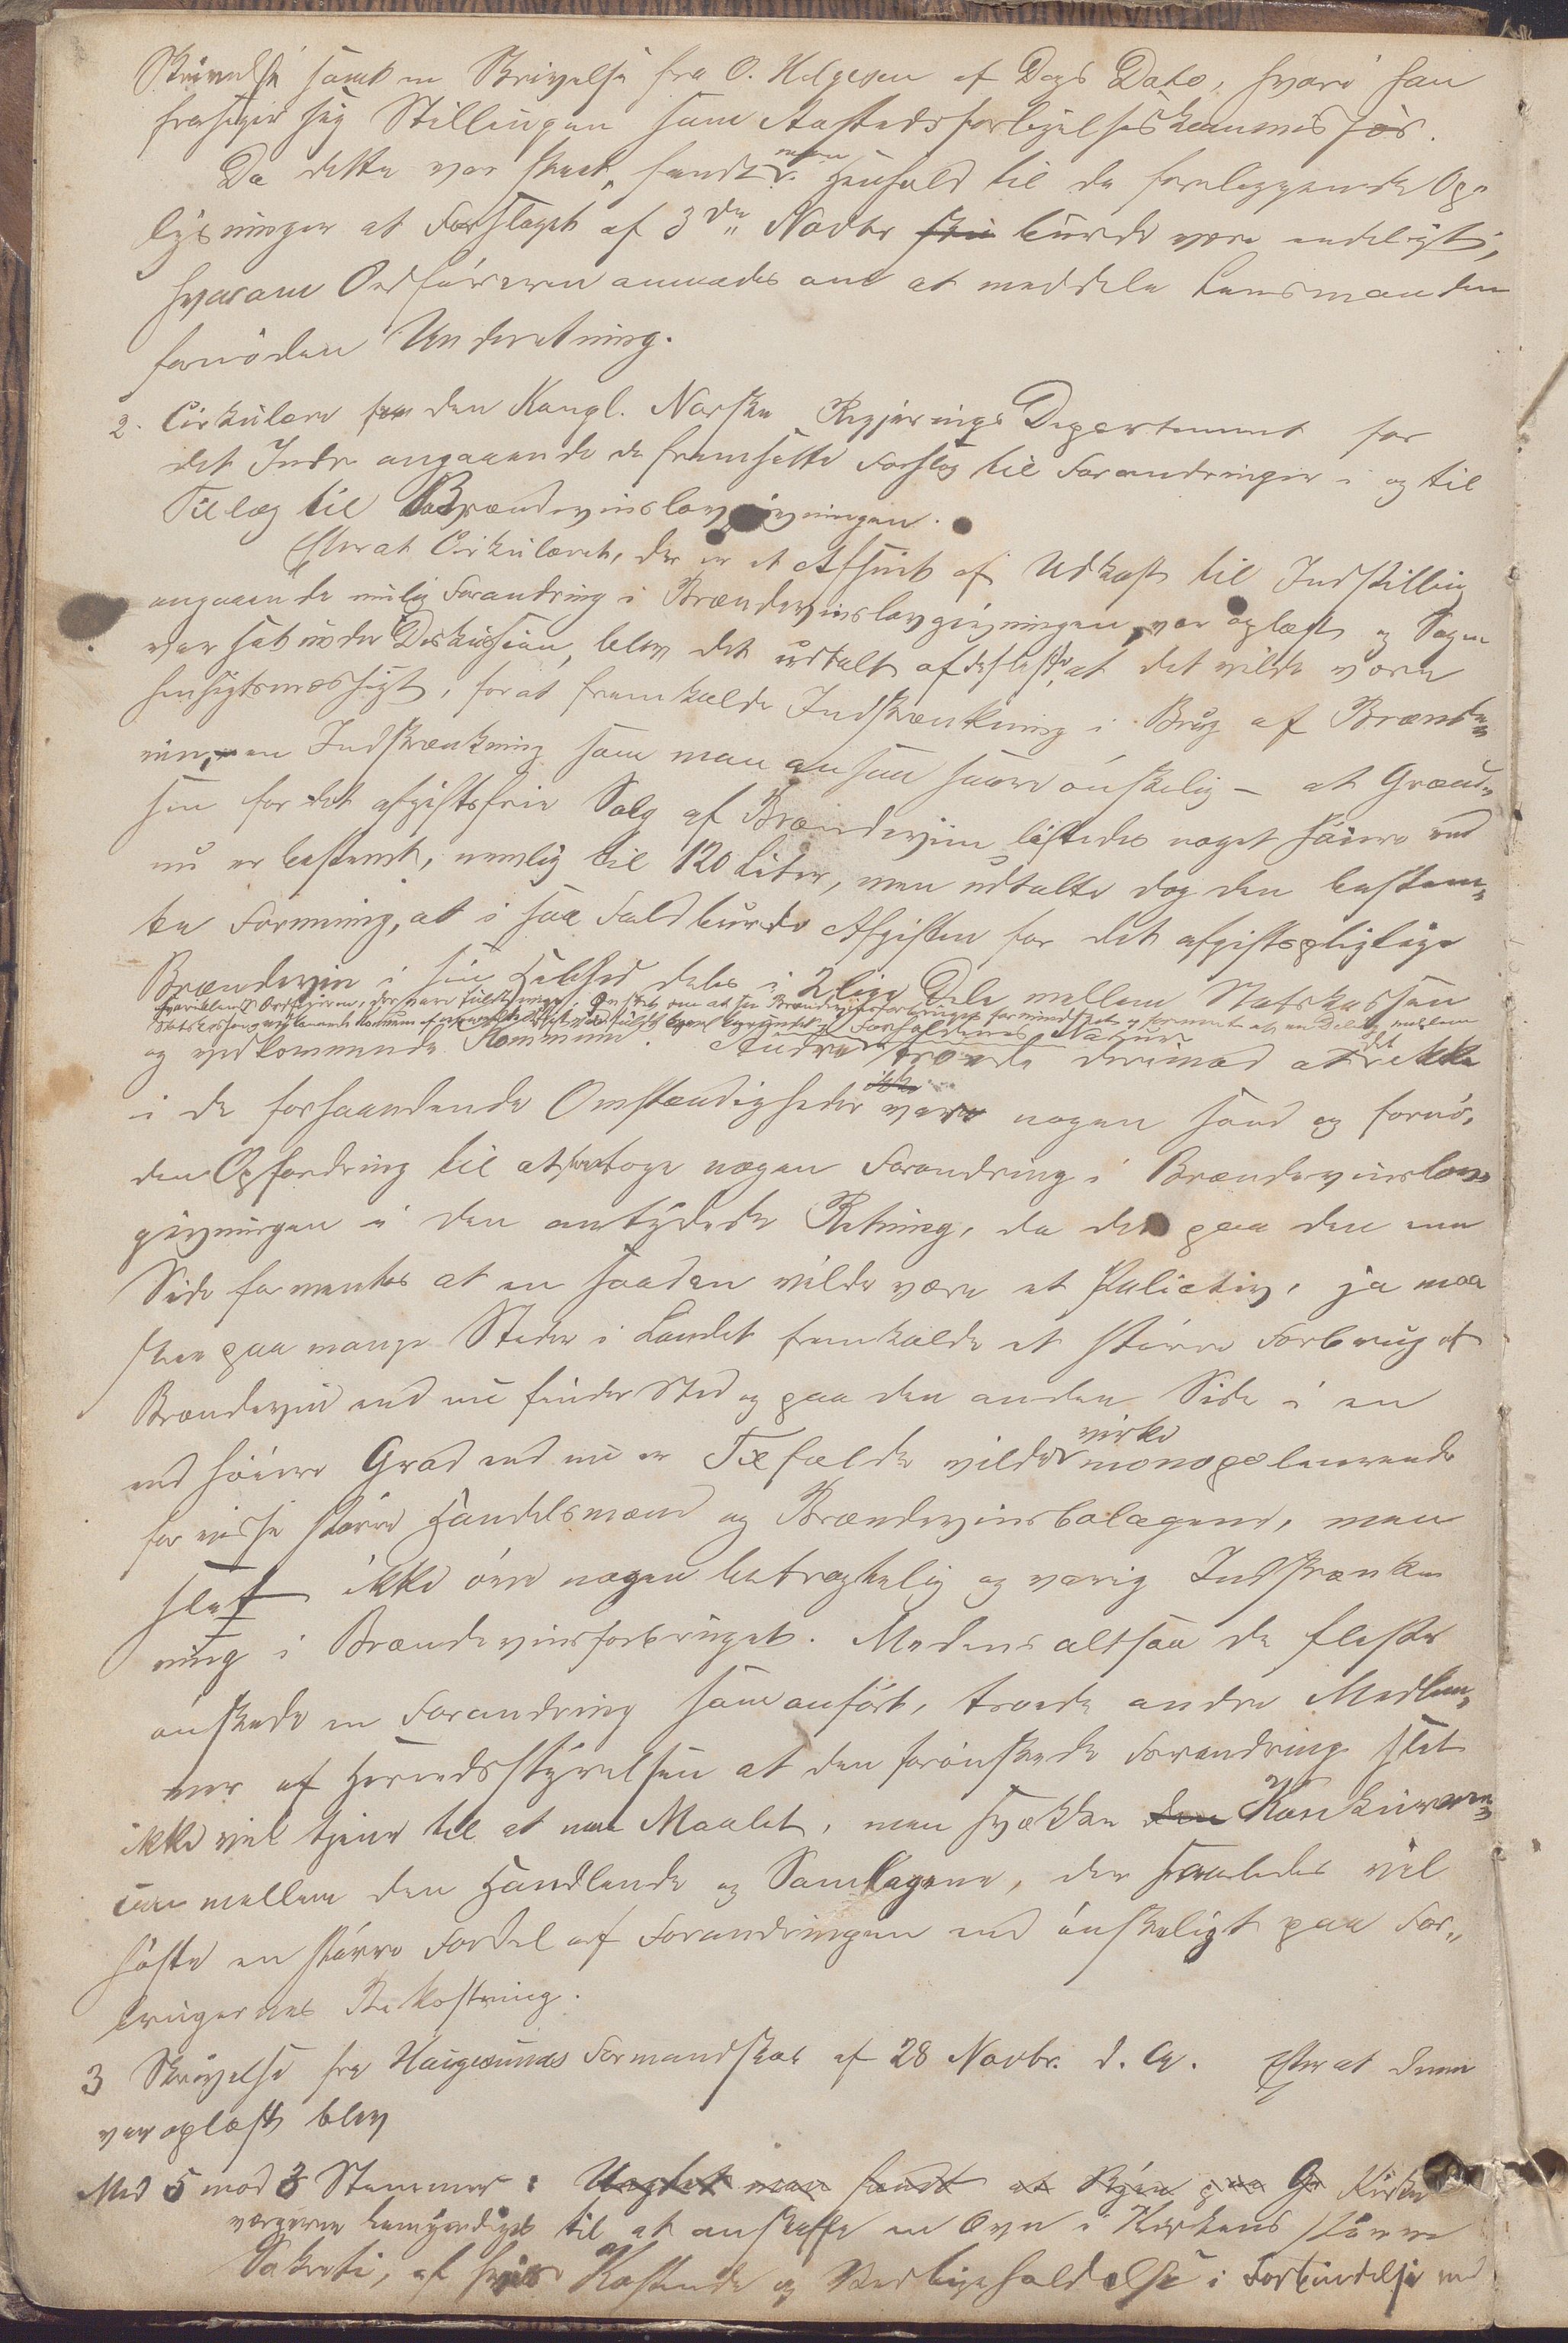 Skrivelse samt en Skrivelse fra O. Helgesen af Dags Dato, hvori han
frasiger sig Stillingen som Aastedsforligelseskommissær.
Da dette var skeet, fandt man i Henhold til de foreliggende Op-
lysninger at Forslaget af 3die Novbr burde være endeligt,
hvorom Ordføreren anmodes om at meddele Lensmanden
fornöden Underretning.
2. Cirkulære fra den Kongl. Norske Regjerings Departement for
det Indre angaaende de fremsatte Forslag til Forandringer i og til
Tillæg til Brændevinslovgivningen.
Efterat Cirkulæret, der er et Afsnit af Udkast til Indstilling
angaaende mulig Forandring i Brændevinslovgivningen, var oplæst og Sagen
var sat under Diskussion, blev det udtalt af de fleste, at det vilde være
hensigtsmæssigt, for at fremkalde Indskrænkning i Brug af Brænde-
vin, – en Indskrænkning som man ansaa saare önskelig – at Grænd-
sen for det afgiftsfrie Salg af Brændeviin löftedes noget höiere end
nu er bestemt, nemlig til 120 Liter, men udtalte dog den bestem-
te Formening, at i saa Fald burde Afgiften for det afgiftspligtige
Brændevin i sin Helhed deles i 2 lige Dele mellem Statskassen
og vedkommende Kommune. Andre troede derimod at det ikke
i de forhaandende Omstændigheder var nogen sand og fornö-
den Opfordring til at foretage nogen Forandring i Brændevinslov-
givningen i den antydede Retning, da det paa den ene
Side formentes at en saadan vilde være et Paliativ, ja maa
skee paa mange Steder i Landet fremkalde et större Forbrug af
Brændevin end nu finder Sted og paa den anden Side i en
end höiere Grad end nu er Tilfældet vilde virke monopoliserende
for visse större Handelsmænd og Brændevinsbolagene, men
slet ikke öve nogen betragtelig og varig Indskrænk-
ning i Brændevinsforbruget. Medens altsaa de fleste
önskede en Forandring som anfört, troede andre Medlem-
mer af Herredsstyrelsen at den forönskede Forandring slet
ikke vil tjene til at naa Maalet, men svække den Konkurren-
cen mellem den Handlende og Samlagene, der saaledes vil
höste en större Fordel af Forandringen end önskeligt paa For-
brugernes Bekostning.
3 Skrivelse fra Haugesunds Formandskab af 28 Novbr. d. A. Efterat denne
var oplæst blev
Med 5 mod 3 Stemmer: Uagtet man fandt at Kirke
værgerne bemyndiget til at anskaffe en Ovn i Kirkens större
Sakristi, af hvis Kostende og Vedligeholdelse i Forbindelse med